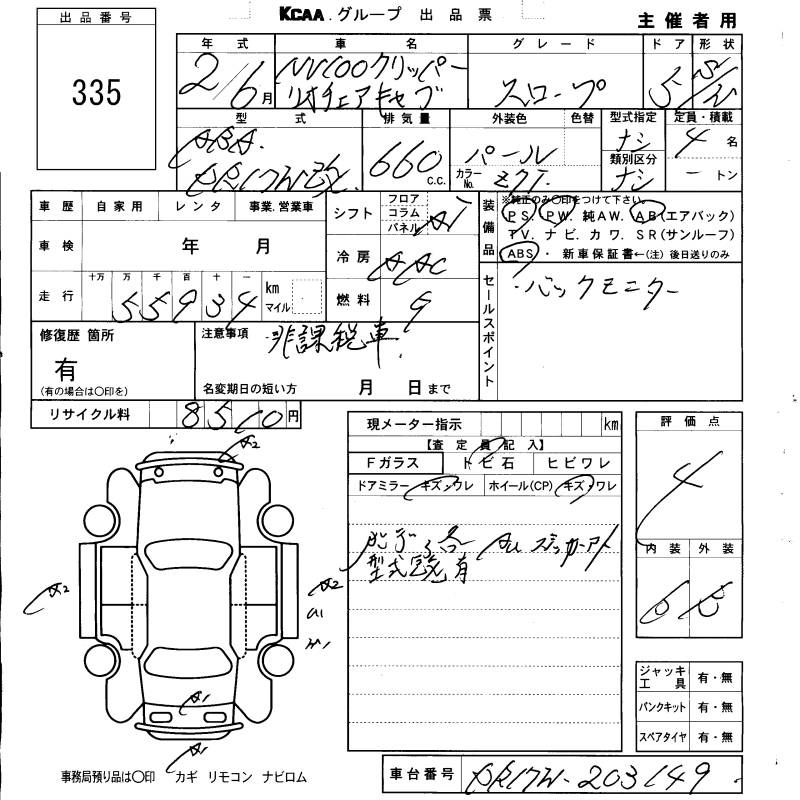 出品番号
335
KCAA.グループ 出品票
主催者用
年式 車名 グレード ドア 形状
2/6月 NV100クリッパー
リオチェアキャブ スロープ 5
型式 排気量 外装色 色替 型式指定 定員・積載
ABA. 660 C.C. パール ナシ 4名
DR17W改. カラーNo. ZJT. 類別区分 ナシ ートン
車歴 自家用 レンタ 事業.営業車
シフト フロア コラム パネル AT
装備品 ※純正のみ〇印をつけて下さい。
PS. PW. 純AW. AB(エアバック)
TV. ナビ. カワ. SR(サンルーフ)
ABS ・ 新車保証書←(注)後日送りのみ
車検 年 月
冷房 AAC
走行 十万 万 千 百 十 一
55934 km マイル
燃料 G
セールスポイント ・バックモニター
修復歴 箇所
有
(有の場合は〇印を)
注意事項 非課税車
名変期日の短い方 月 日まで
リサイクル料 8510円
現メーター指示 km
【査定員記入】
Fガラス トビ石 ヒビワレ
ドアミラー キズ・ワレ ホイール(CP) キズ・ワレ
評価点
4
内装 外装
A2
A2
A2
A1
A1
ジャッキ工具 有・無
パンクキット 有・無
スペアタイヤ 有・無
事務局預り品は〇印 カギ リモコン ナビロム
車台番号 DR17W-203149